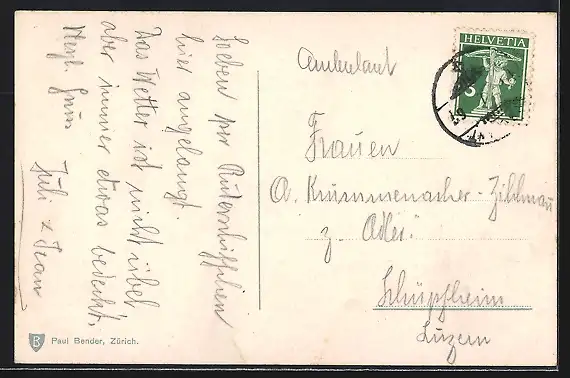 Soeben per Ruderschiffchen
hier angelangt.
Das Wetter ist nicht übel,
aber immer etwas bedeckt.
Herzl. Gruss
Juli & Jean
Ambulant
Frauen
A. Krummenacher-Zihlmann
z. Adler
Schüpfheim
Luzern
HELVETIA
5
Paul Bender, Zürich.